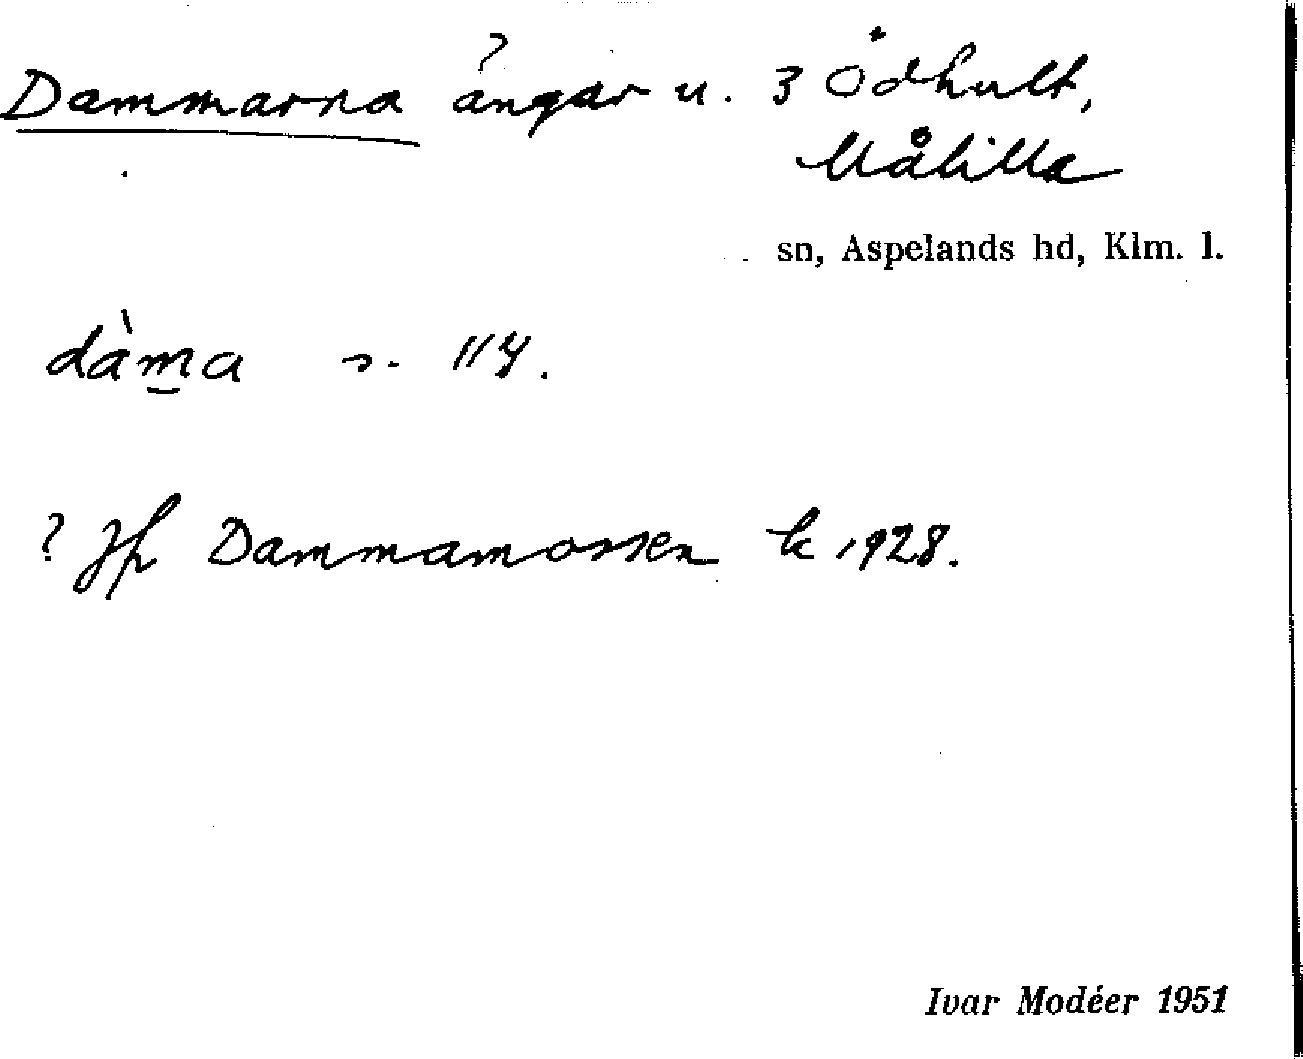 Dammarna ängar u. 3 Ödhult,
Målilla
sn, Aspelands hd, Klm. l.
dàma s. 114.
? Jfr Dammamossen k 1928.
Ivar Modéer 1951